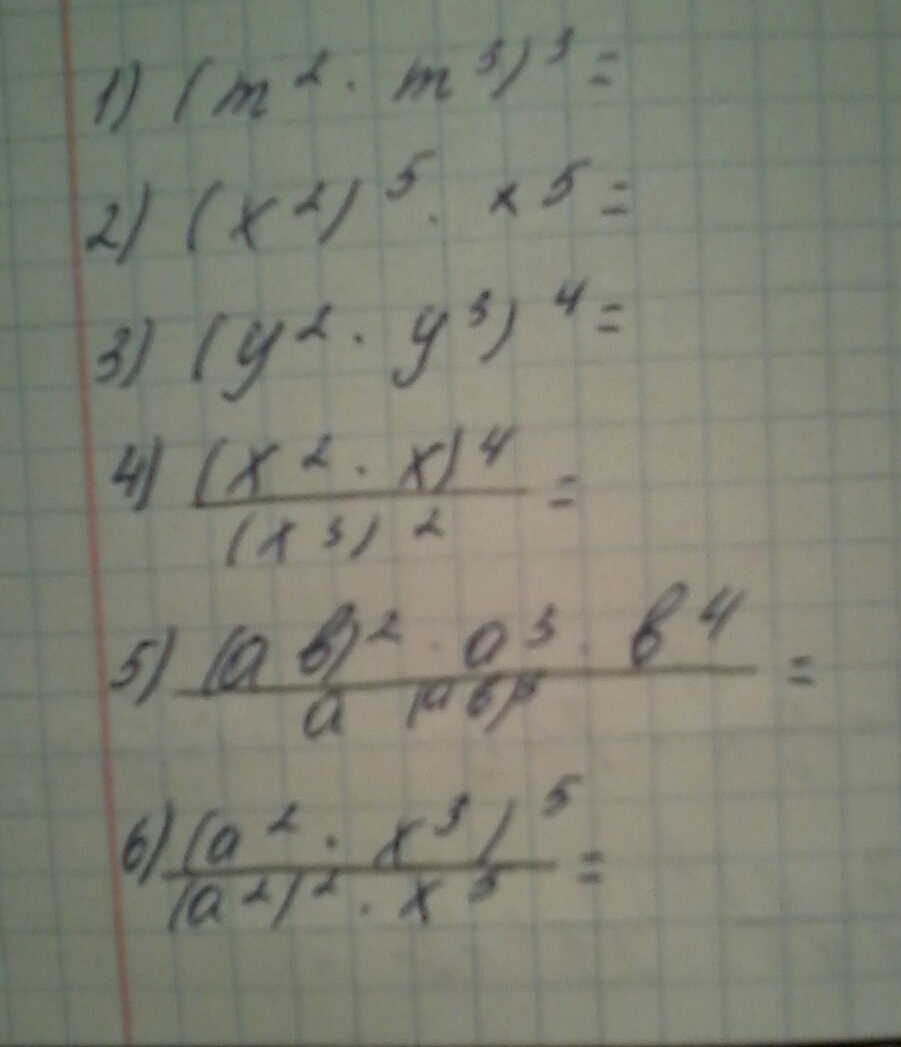 1) (m² · m³)³ =
2) (x²)⁵ · x⁵ =
3) (y² · y³)⁴ =
4) (x² · x)⁴
(x³)²
=
5) (a b)² · a³ · b⁴
a (a b)
=
6) (a² · x³)⁵
(a²)² · x⁵
=